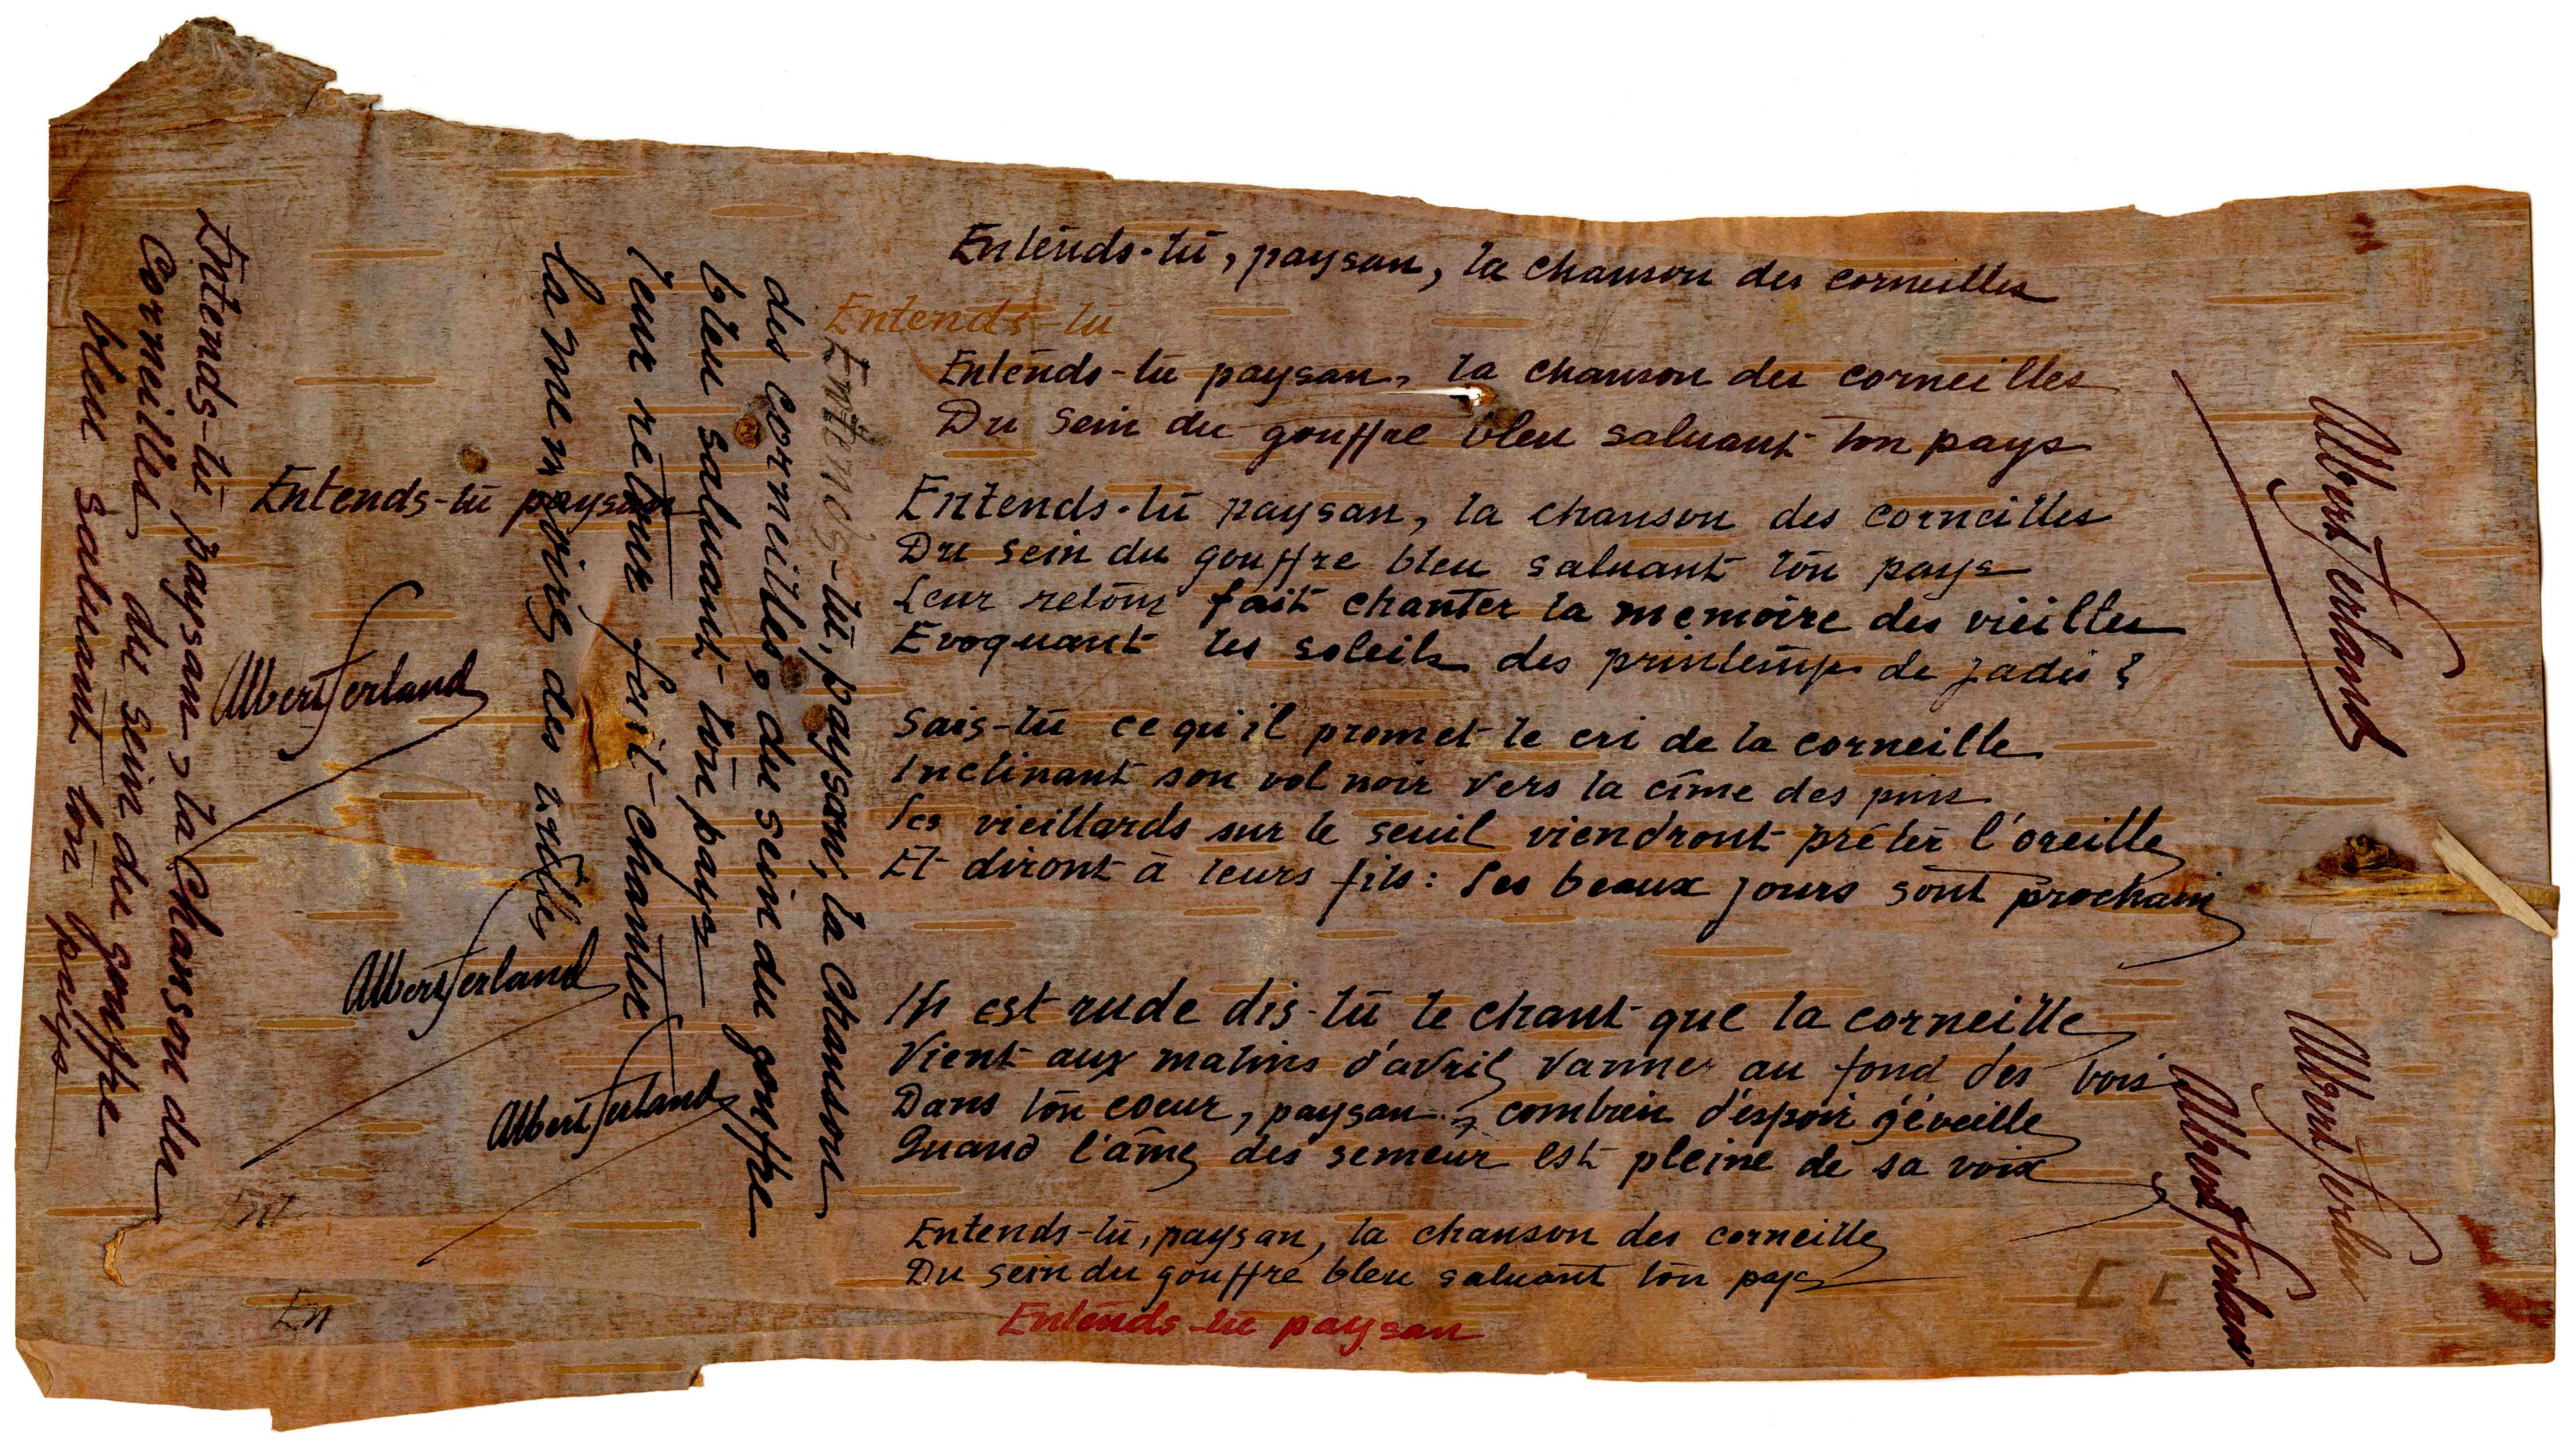 Entends-tu, paysan, la chanson des corneilles
Entends-tu
Entends-tu paysan, la chanson des corneilles
Du sein du gouffre bleu saluant ton pays
Entends-tu paysan, la chanson des corneilles
Du sein du gouffre bleu saluant ton pays
Leur retour fait chanter la memoire des vieilles
Evoquant les soleils des printemps de jadis ?
Sais-tu ce qu'il promet le cri de la corneille
Inclinant son vol noir vers la cîme des pins
Les vieillards sur le seuil viendront prêter l'oreille
Et diront à leurs fils : Les beaux jours sont prochain
Il est rude dis-tu le chant que la corneille
Vient aux matins d'avril vanner au fond des bois
Dans ton coeur, paysan, combien d'espoir s'éveille
Quand l'âme des semeur est pleine de sa voix
Entends-tu, paysan, la chanson des corneille
Du sein du gouffre bleu saluant ton pays
Entends-tu paysan
Entends-tu, paysan, la chanson
des corneilles, du sein du gouffre
bleu saluant ton pays
leur retour fait chanter
la memoire des
Entends-tu paysan
Entends-tu paysan, la chanson des
corneilles du sein du gouffre
bleu saluant ton pays
Albert Ferland
Albert Ferland
Albert Ferland
Ent
En
Albert Ferland
Albert Ferlan
Albert Ferland